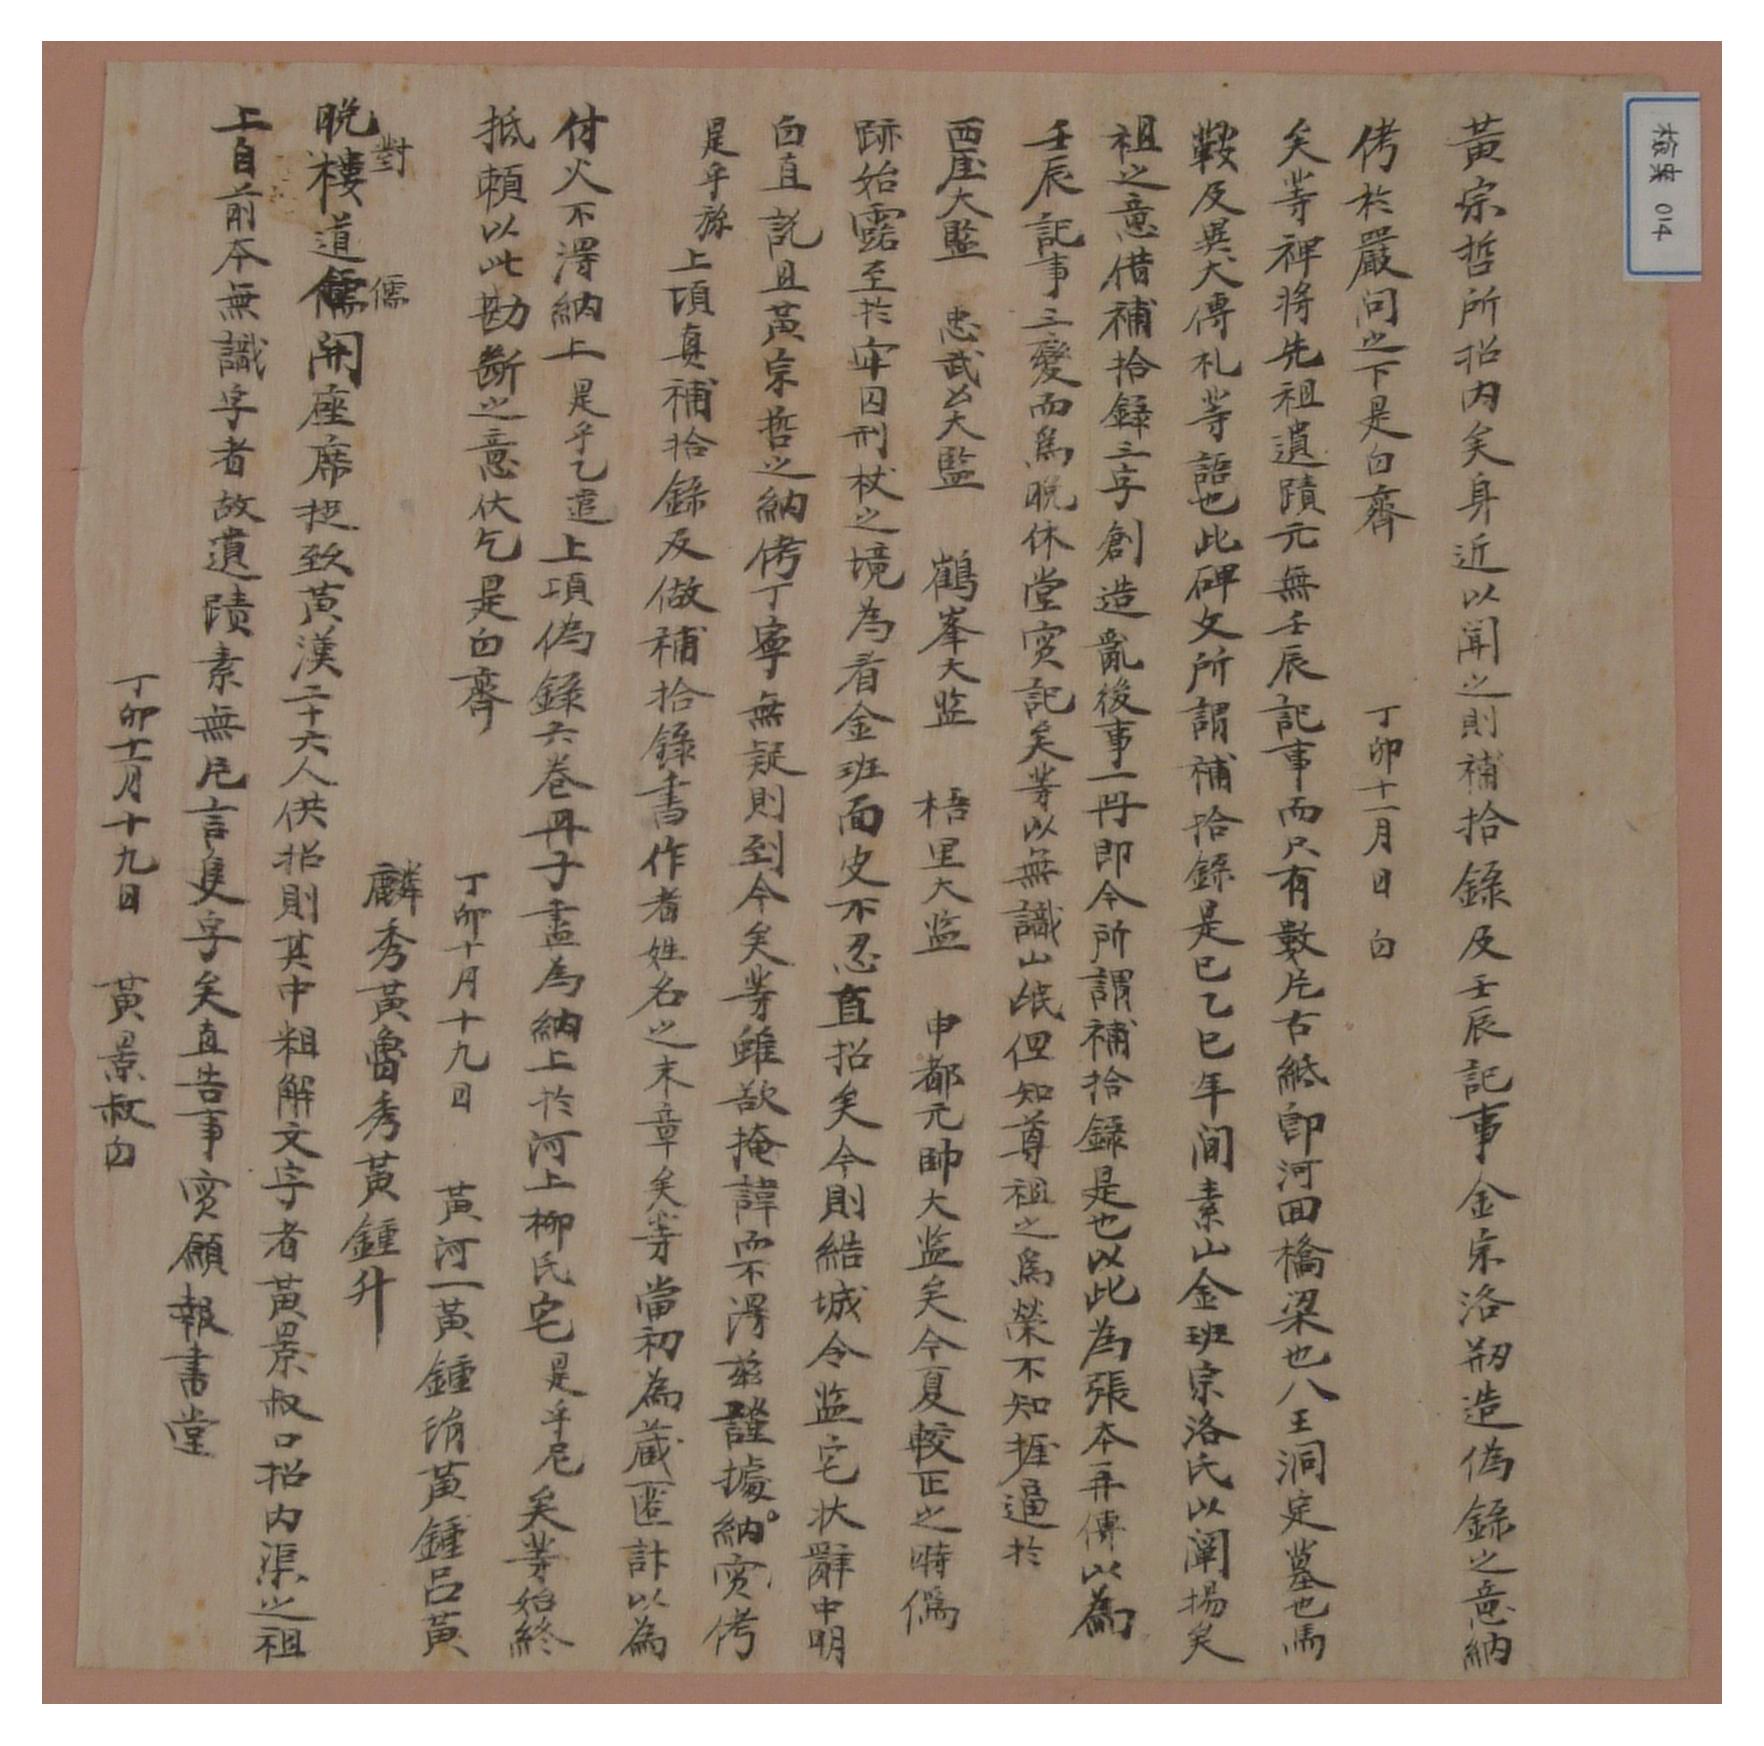 黃宗哲所招內矣身近以聞之則補拾錄及壬辰記事金宗洛刱造偽錄之意納
侤於嚴問之下是白齊　丁卯十一月日 白
矣等裨將先祖遺蹟元無壬辰記事而只有數片古紙卽河回橋梁也八王洞定墓也馬
鞍及異犬傳札等語也此碑文所謂補拾錄是已乙巳年間素山金班宗洛氏以闡揚矣
祖之意借補拾錄三字創造亂後事一冊卽今所謂補拾錄是也以此為張本再傳以為
壬辰記事三變而爲晩休堂實記矣等以無識山氓但知尊祖之爲榮不知握逼於
西厓大監　忠武公大監　鶴峯大监　梧里大监　申都元帥大监矣今夏較正之時僞
跡始露至於牢囚刑杖之境為看金班面皮不忍直招矣今則結城令监宅状辭中明
白直託且黃宗哲之納侤丁寧無疑則到今矣等雖欲掩諱而不得玆謹據納實侤
是乎旀上項真補拾錄及做補拾錄書作者姓名之末章矣等當初為蔵匿計以為
付火不得納上是乎乙遣上項偽錄六卷冊子盡為納上於河上柳氏宅是乎尼矣等始終
抵賴以此勘斷之意伏乞是白齊
丁卯十月十九日　黃河一黃鍾瑂黃鍾呂黃
麟秀黃魯秀黃鍾升
對　儒
晩樓道儒開座席捉致黃漢二十六人供招則其中粗解文字者黃景叔口招內渠之祖
上自前本無識字者故遺蹟素無片言隻字矣直告事實願報書堂
丁卯十一月十九日　黃景叔白
檢案 014